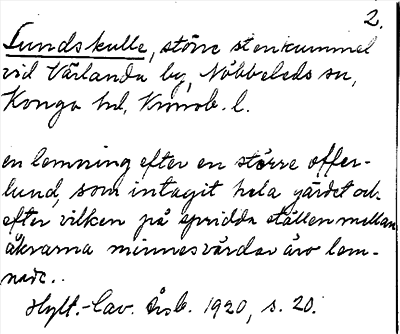 2.
Lundskulle, större stenkummel
vid Värlanda by, Nöbbeleds sn,
Konga hd, Kronob. l.
en lemning efter en större offer-
lund, som intagit hela gärdet och
efter vilken på spridda ställen mellan
åkrarna minnesvårdar äro lem-
nade..
Hylt.-Cav. Årsb. 1920, s. 20.